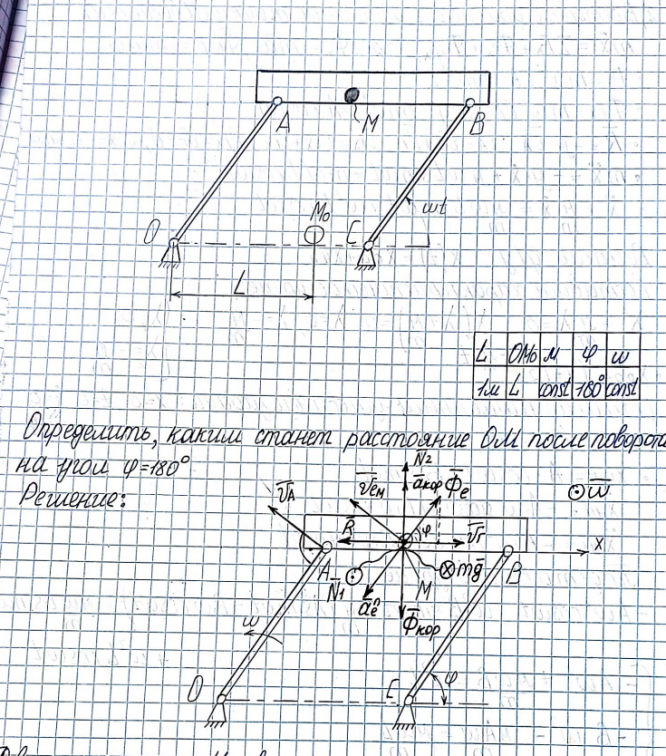 A
M
B
ωt
O
M₀
C
L
L OM₀ м φ ω
1м L const 180° const
Определить, каким станет расстояние OM после поворота
на угол φ=180°
Решение:
N̄₂
V̄_A
V̄_eм
ā_кор
Φ̄_e
ω̄
R̄
φ
V̄_r
x
A
N̄₁
M
mḡ
B
ā_e
Φ̄_кор
ω
O
C
φ